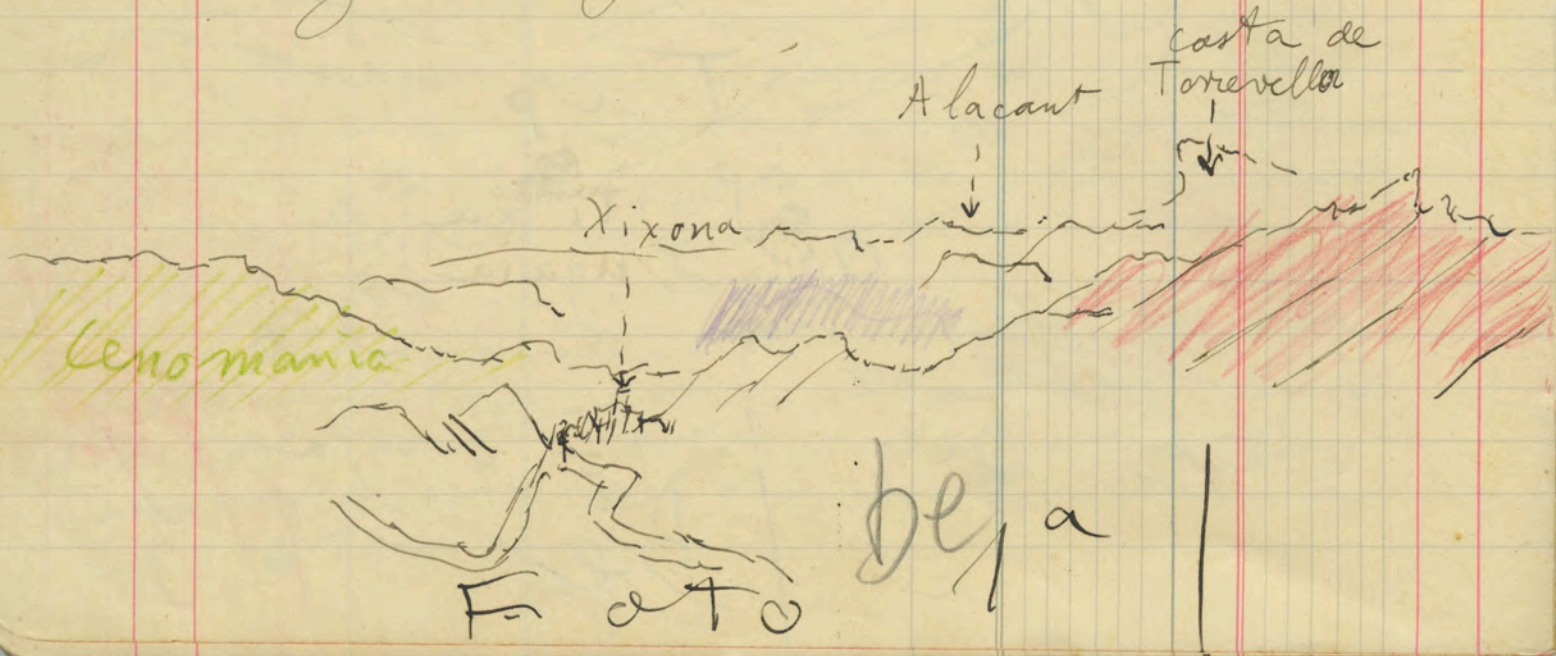 costa de
Torrevella
Alacant
Xixona
Cenomania
be, a
Foto